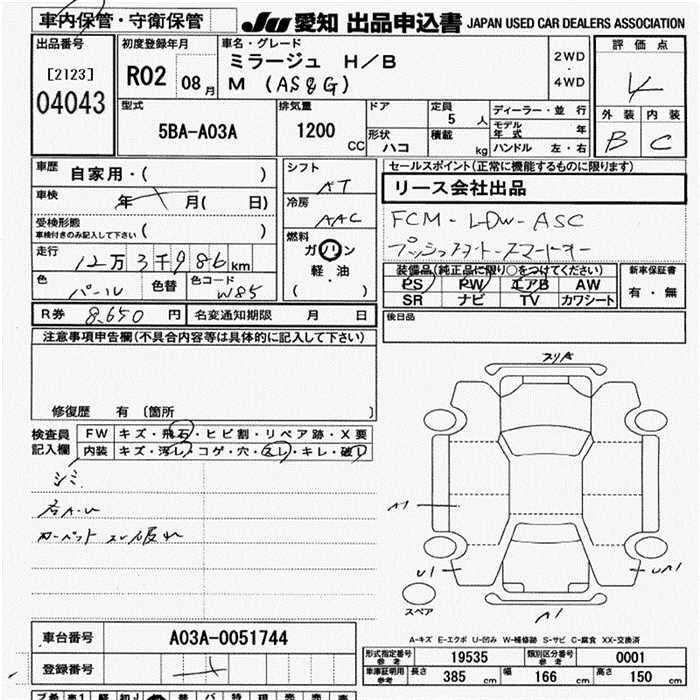 車内保管・守衛保管
JU 愛知 出品申込書 JAPAN USED CAR DEALERS ASSOCIATION
出品番号
[2123]
04043
初度登録年月
R02 08月
車名・グレード
ミラージュ H/B
M (AS&G)
2WD
・
4WD
評価点
4
外装 内装
B C
型式
5BA-A03A
排気量
1200
CC
ドア
形状
ハコ
定員
5 人
積載
kg
ディーラー・並行
モデル年式 年
ハンドル 左・右
車歴
自家用・( )
車検
年 月( 日)
受検形態
車検付きのみ記入して下さい ( )
走行
12万3千986km
色
パール
色替
色コード
W85
シフト
AT
冷房
AAC
燃料
ガソリン
軽・油
( )
セールスポイント(正常に機能するものに限ります)
リース会社出品
FCM-LDW-ASC
プッシュスタート-スマートキー
装備品(純正品に限り○をつけてください)
PS PW エアB AW
SR ナビ TV カワシート
新車保証書
有・無
後日品
R券 8,650 円 名変通知期限 月 日
注意事項申告欄(不具合内容等は具体的に記入して下さい)
修復歴 有 〔箇所 〕
検査員
記入欄
FW キズ・飛石・ヒビ割・リペア跡・X要
内装 キズ・汚レ・コゲ・穴・スレ・キレ・破レ
シミ
カーペット スレ破れ
スリキ
A1
U1
UA1
A1
スペア
A-キズ E-エクボ U-凹み W-補修跡 S-サビ C-腐食 XX-交換済
車台番号 A03A-0051744
登録番号
形式指定番号
参考
19535
類別区分番号
参考
0001
車庫証明用
参考
長さ 385 cm 幅 166 cm 高さ 150 cm